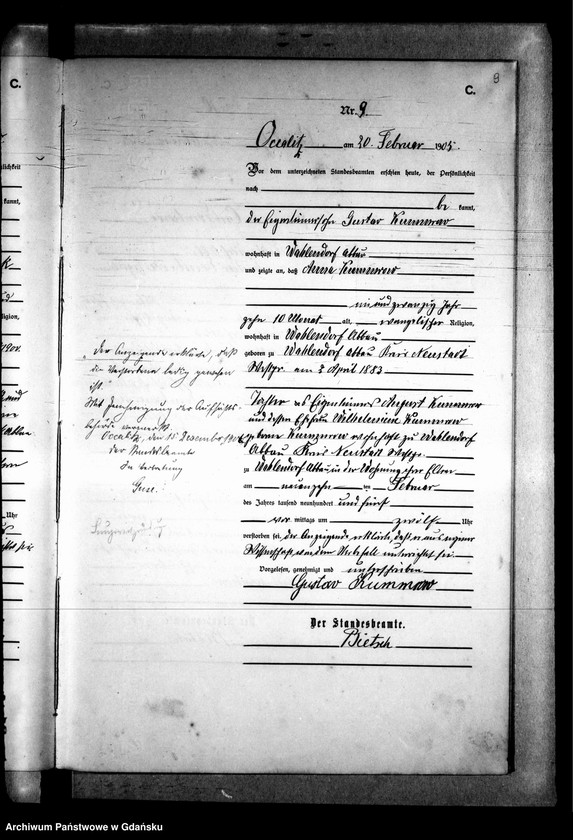 C.
C.
9
Nr. 9.
Occalitz am 20. Februar 1905
Vor dem unterzeichneten Standesbeamten erschien heute, der Persönlichkeit
nach
be kannt,
der Eigentümersohn Gustav Kummrow
wohnhaft in Wahlendorf Abbau
und zeigte an, daß Anna Kummrow
einundzwanzig Jahr
zehn 10 Monat alt, evangelischer Religion,
wohnhaft in Wahlendorf Abbau
geboren zu Wahlendorf Abbau Kreis Neustadt
Westpr. am 3 April 1883
Tochter des Eigentümers August Kummrow
und dessen Ehefrau Wilhelmine Kummrow
geborene Kummrow wohnhaft zu Wahlendorf
Abbau Kreis Neustadt Westpr.
zu Wahlendorf Abbau, in der Wohnung ihrer Eltern
am neunzehn ten Februar
des Jahres tausend neunhundert und fünf
vor mittags um zwölf Uhr
verstorben sei, der Anzeigende erklärte, daß er aus eigener
Wissenschaft von dem Sterbefall unterrichtet sei.
Vorgelesen, genehmigt und unterschrieben
Gustav Kummrow
Der Standesbeamte.
Bietsch
"Der Anzeigende erklärte, daß
die Verstorbene ledig gewesen
ist."
Mit Genehmigung der Aufsichts-
behörde vermerkt.
Occalitz, den 15. Dezember
der Standesbeamte
In Vertretung
Archiwum Państwowe w Gdańsku